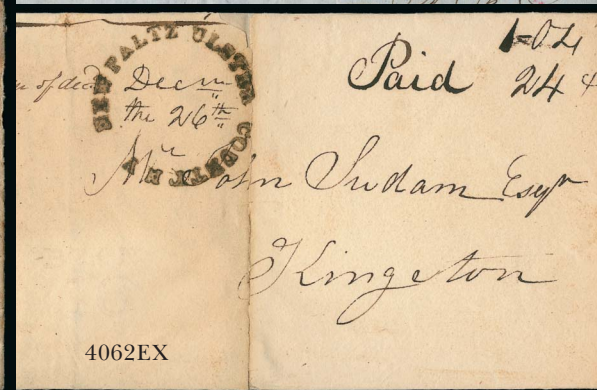 NEW PALTZ ULSTER COUNTY N.Y
Decm
the 26th
Paid
24
Mr John Sudam Esqr
Kingston
4062EX